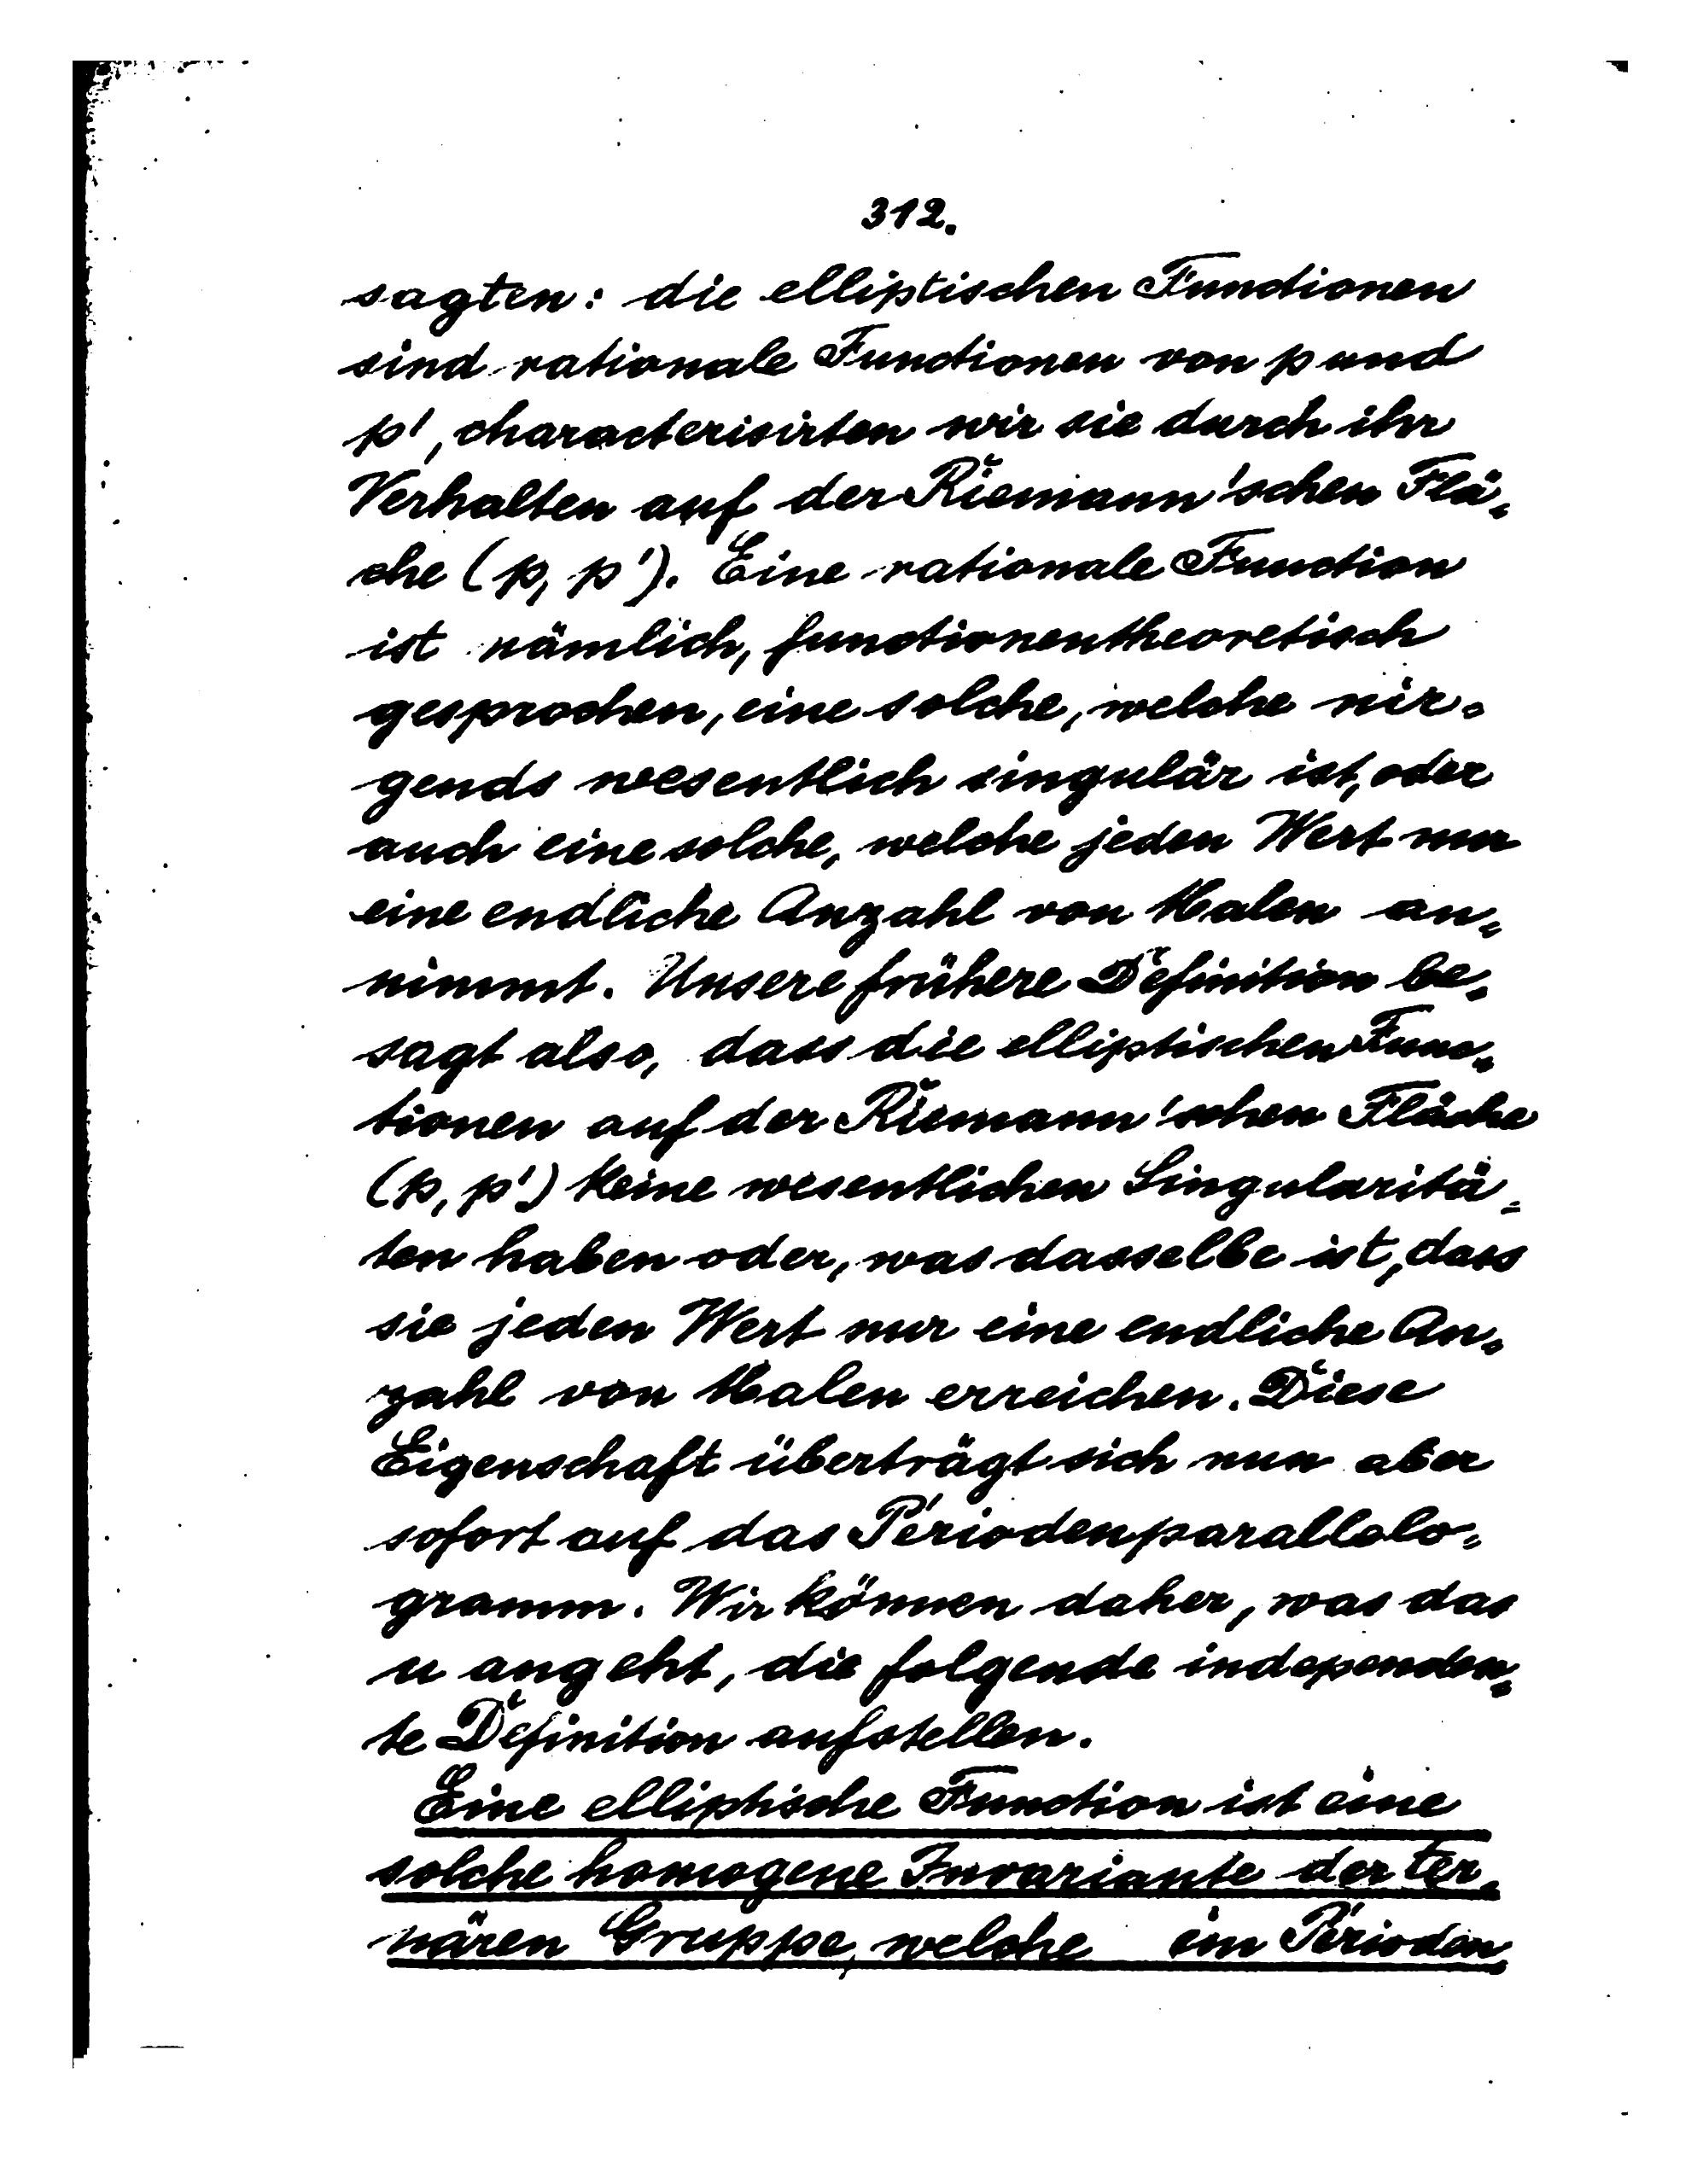 312.
sagten: die elliptischen Functionen
sind rationale Functionen von p und
p', characterisirten wir sie durch ihr
Verhalten auf der Riemann'schen Flä=
che (p, p'). Eine rationale Function
ist nämlich, functionentheoretisch
gesprochen, eine solche, welche nir=
gends wesentlich singulär ist, oder
auch eine solche, welche jeden Wert nur
eine endliche Anzahl von Malen an=
nimmt. Unsere frühere Definition be=
sagt also, dass die elliptischen Func=
tionen auf der Riemann'schen Fläche
(p, p') keine wesentlichen Singularitä=
ten haben oder, was dasselbe ist, dass
sie jeden Wert nur eine endliche An=
zahl von Malen erreichen. Diese
Eigenschaft überträgt sich nun aber
sofort auf das Periodenparallelo=
gramm. Wir können daher, was das
u angeht, die folgende independen=
te Definition aufstellen.
Eine elliptische Function ist eine
solche homogene Invariante der ter=
nären Gruppe, welche im Perioden=